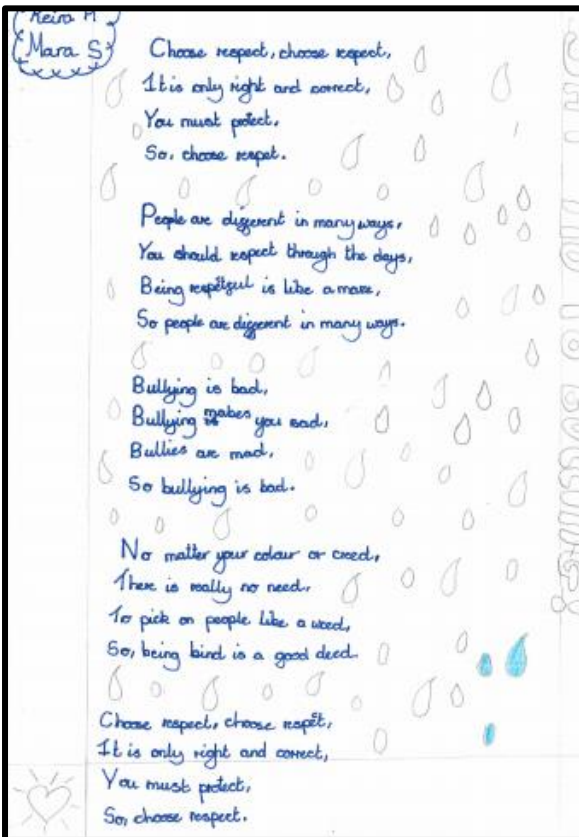 Keira M
Mara S
Choose respect, choose respect,
It is only right and correct,
You must protect,
So, choose respet.
People are different in many ways,
You should respect through the days,
Being respetful is like a maze,
So people are different in many ways.
Bullying is bad,
Bullying makes you sad,
Bullies are mad,
So bullying is bad.
No matter your colour or creed,
There is really no need,
To pick on people like a weed,
So, being bind is a good deed.
Choose respect, choose respet,
It is only right and correct,
You must protect,
So, choose respect.
SAY NO TO BULLYING!